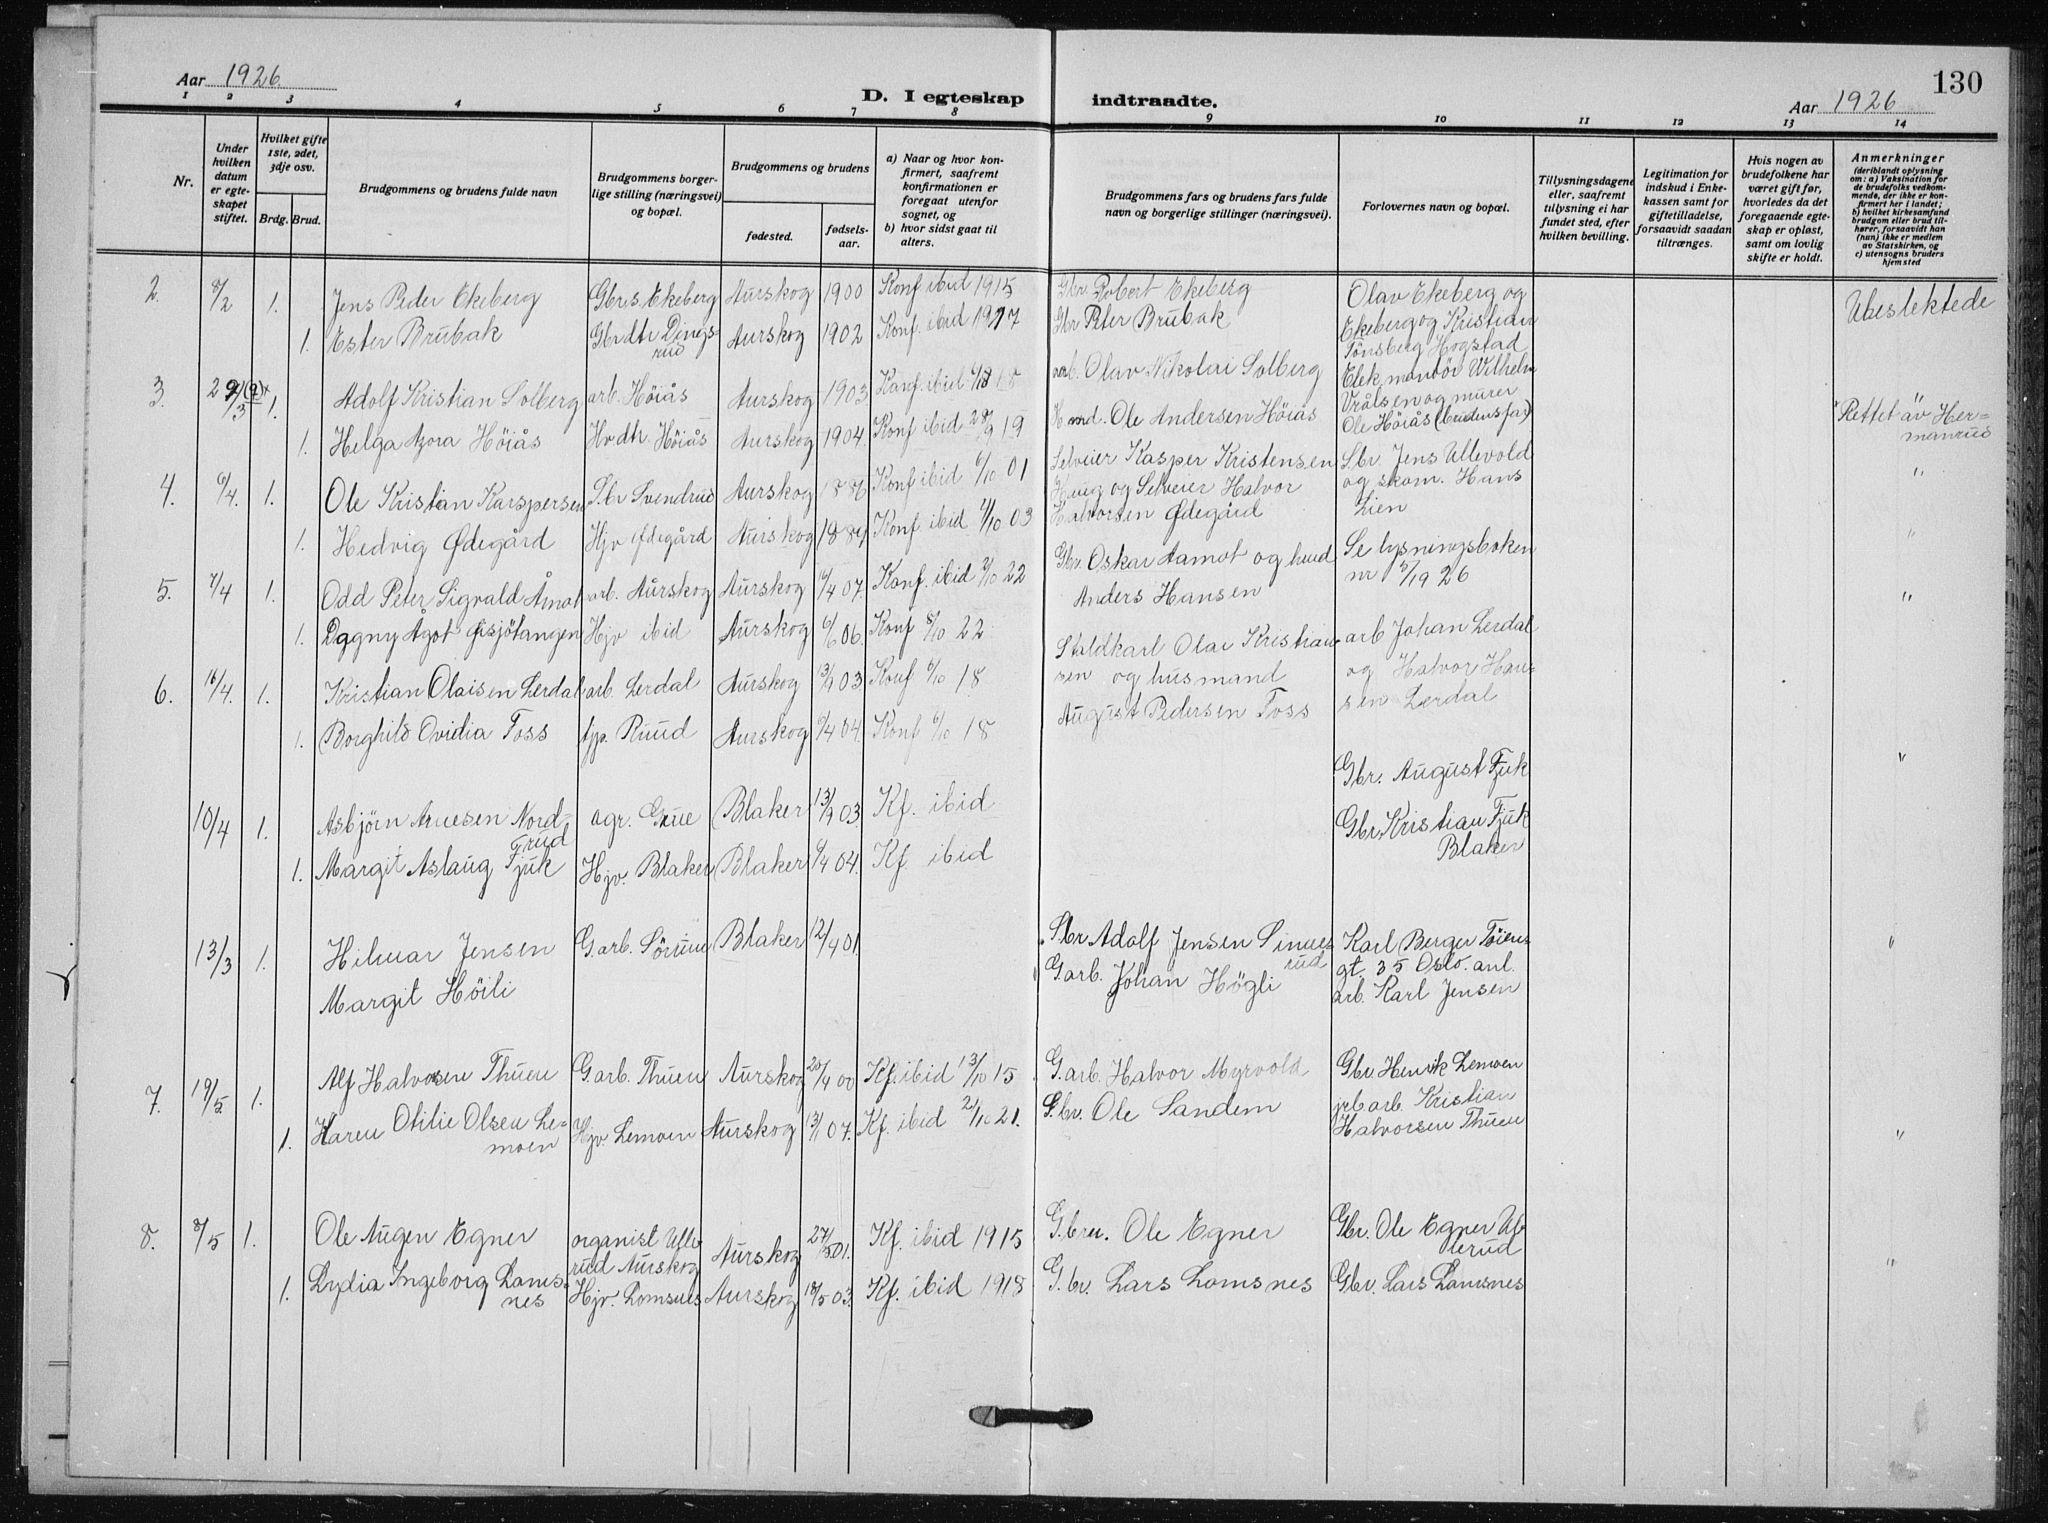 Aar 1926
D. I egteskap indtraadte.
Aar 1926
130
1 2 3 4 5 6 7 8 9 10 11 12 13 14
Nr.
Under hvilken datum er egteskapet stiftet.
Hvilket gifte 1ste, 2det, 3dje osv.
Brdg. Brud.
Brudgommens og brudens fulde navn
Brudgommens borgerlige stilling (næringsvei) og bopæl.
Brudgommens og brudens
fødested.
fødselsaar.
a) Naar og hvor konfirmert, saafremt konfirmationen er foregaat utenfor sognet, og
b) hvor sidst gaat til alters.
Brudgommens fars og brudens fars fulde navn og borgerlige stillinger (næringsvei).
Forlovernes navn og bopæl.
Tillysningsdagene eller, saafremt tillysning ei har fundet sted, efter hvilken bevilling.
Legitimation for indskud i Enkekassen samt for giftetilladelse, forsaavidt saadan tiltrænges.
Hvis nogen av brudefolkene har været gift før, hvorledes da det foregaaende egteskap er opløst, samt om lovlig skifte er holdt.
Anmerkninger
(deriblandt oplysning om: a) Vaksination for de brudefolks vedkommende, der ikke er konfirmert her i landet;
b) hvilket kirkesamfund brudgom eller brud tilhører, forsaavidt han (hun) ikke er medlem av Statskirken, og
c) utensogns bruders hjemsted
2. 8/2 1. Jens Peder Ekeberg Gbrs. Ekeberg Aurskog 1900 Konf ibid 1915 Gbr. Robert Ekeberg Olav Ekeberg og Ubeslektede
1. Ester Brubak Gbrdtr Dingsrud Aurskog 1902 Konf. ibid 1917 Gbr Peter Brubak Ekeberg og Kristian
Tønsberg Hogstad
3. 1. Adolf Kristian Solberg arb. Höiås Aurskog 1903 Konf ibid arb. Olav Nikolai Solberg Elek. montör Wilhelm
Vrålsen og murer
1. Helga Azora Höiås Hvdtr. Höiås Aurskog 1904 Konf ibid 28/9 19 Hmd. Ole Andersen Höiås Ole Höiås (brudens far) Rettet av Her-
4. 6/4. 1. Ole Kristian Karspersen Sbr Svendrud Aurskog 1886 Konf ibid 6/10 01 Selveier Kasper Kristensen Sbr. Jens Ullevold "
Haug og Selveier Halvor og skom. Hans
1. Hedvig Ødegård Hjv Ødegård Aurskog Konf ibid 03 Halvorsen Ødegård Lien "
5. 7/4 1. Odd Peter Sigvald Åmot arb. Aurskog Aurskog 16/4 07. Konf. ibid 22 Gbr. Oskar Aamot og hmd Se lysningsboken "
Anders Hansen nr 5/1926
1. Dagny Agot Øisjötangen Hjv ibid Aurskog 6/6 06. Konf 8/10 22
6. 16/4. 1. Kristian Olaisen Lerdal arb. Lerdal Aurskog 03 Konf 6/10 18 Staldkarl Olai Kristian- arb Johan Lerdal
sen og husmand og Halvor Han-
1. Borghild Ovidia Foss tjp. Ruud Aurskog 6/4 04. Konf 6/10 18 August Pedersen Foss sen Lerdal
Gbr. August Fjuk "
10/4 1. Asbjörn Arnesen Nord- agr. Grue Blaker 13/9 03. Kf. ibid Gbr. Kristian Fjuk
rud Blaker
1. Margit Aslaug Fjuk Hjv. Blaker Blaker 6/4 04. Kf. ibid
13/3 1. Hilmar Jensen G.arb. Sörum Blaker 12/4 01. Sbr Adolf Jensen Karl Berger Töien- "
Margit Höili G.arb. Johan Högli gt. 35 Oslo. anl.
arb. Karl Jensen
7. 19/5. 1. Alf Halvorsen Thuen G.arb. Thuen Aurskog 20/4 00 Kf. ibid 13/10 15 G.arb. Halvor Myrvold Gbr. Henrik Lemoen
1. Karen Otilie Olsen Le- Hjv. Lemoen Aurskog 13/1 07. Kf. ibid 21. S.br. Ole Sandem jrb arb. Kristian
moen Halvorsen Thuen "
8. 8/5 1. Ole Augen Egner organist Ulle- Aurskog 27/5 01. Kf. ibid 1915 G.bru. Ole Egner Gbr. Ole Egner Ul-
rud Aurskog lerud
1. Lydia Ingeborg Loms- Hjv. Lomsnes Aurskog 18/5 03. Kf. ibid 1918 G.br. Lars Lomsnes Gbr. Lars Lomsnes "
nes